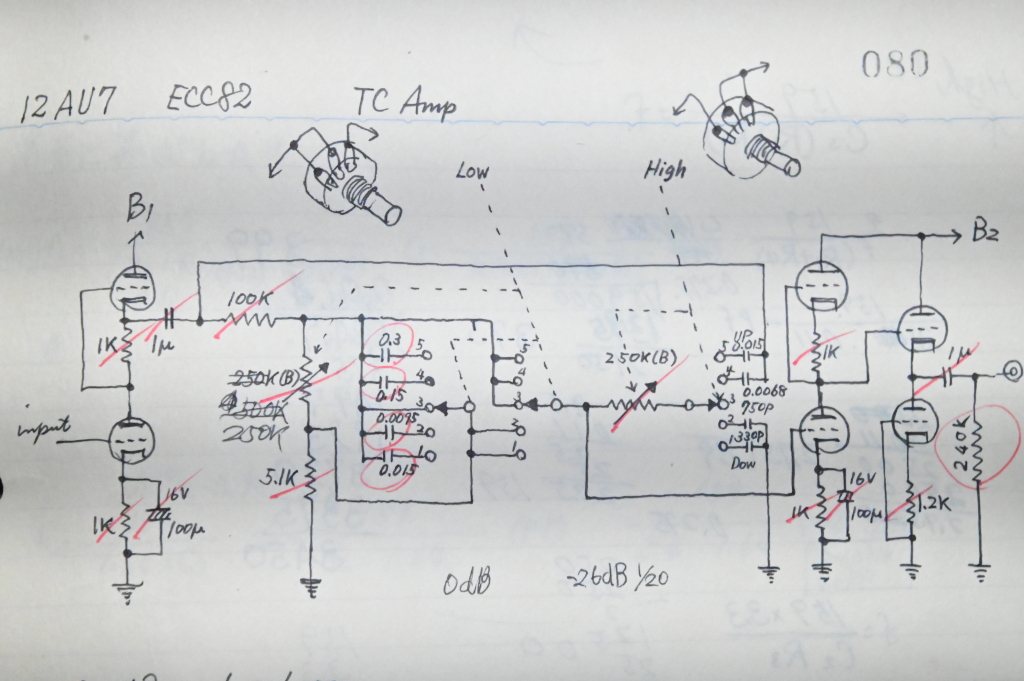 080
12AU7 ECC82 TC Amp
Low High
B1
B2
100K
1K
1μ
250K(B)
250K
input
5.1K
1K
16V
100μ
0.3 5
0.15 4
3
0.0095 2
0.015 1
5
4
3
2
1
250K(B)
UP
5 0.015
4 0.0068
3
2 750P
1 330P
Dow
1K
1μ
240K
1K
16V
100μ
1.2K
0dB -26dB 1/20